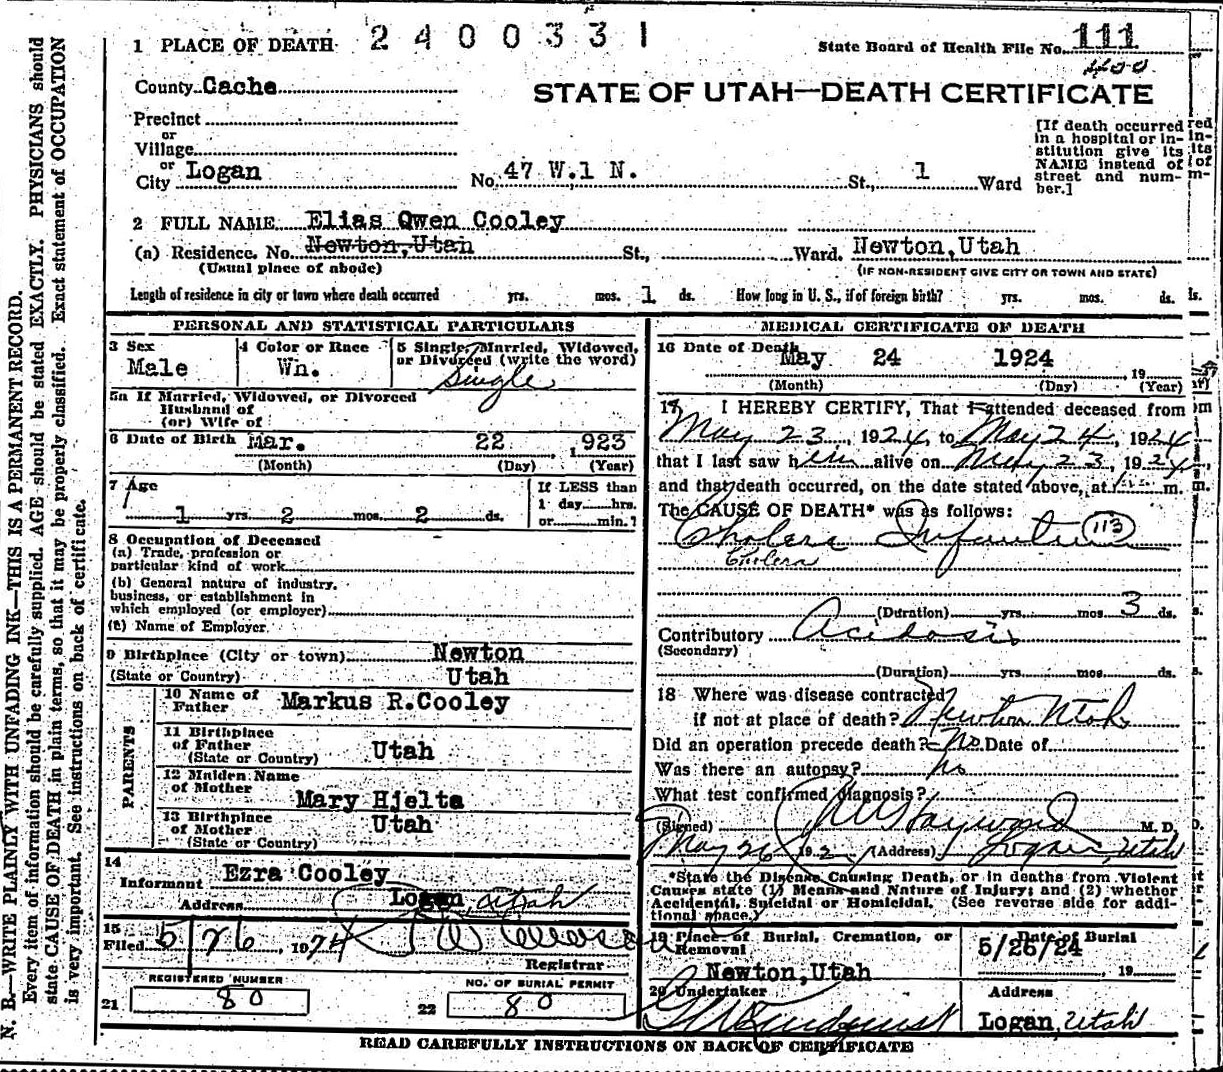 1 PLACE OF DEATH 2400331
State Board of Health File No. 111
400
County Cache
STATE OF UTAH—DEATH CERTIFICATE
Precinct
or
Village
or
City Logan No. 47 W.1 N. St., 1 Ward
[If death occurred in a hospital or institution give its NAME instead of street and number.]
2 FULL NAME Elias Qwen Cooley
(a) Residence. No. Newton,Utah St., Ward. Newton,Utah
(Usual place of abode) (IF NON-RESIDENT GIVE CITY OR TOWN AND STATE)
Length of residence in city or town where death occurred yrs. mos. 1 ds. How long in U. S., if of foreign birth? yrs. mos. ds.
PERSONAL AND STATISTICAL PARTICULARS
3 Sex
Male
4 Color or Race
Wn.
5 Single, Married, Widowed,
or Divorced (write the word)
Single
5a If Married, Widowed, or Divorced
Husband of
(or) Wife of
6 Date of Birth Mar. 22 ,923
(Month) (Day) (Year)
7 Age
1 yrs. 2 mos. 2 ds.
If LESS than
1 day hrs.
or min.?
8 Occupation of Deceased
(a) Trade, profession or
particular kind of work
(b) General nature of industry,
business, or establishment in
which employed (or employer)
(c) Name of Employer
9 Birthplace (City or town) Newton
(State or Country) Utah
PARENTS
10 Name of
Father Markus R.Cooley
11 Birthplace
of Father Utah
(State or Country)
12 Maiden Name
of Mother Mary Hjelte
13 Birthplace
of Mother Utah
(State or Country)
14
Informant Ezra Cooley
Address Logan, Utah
15
Filed 5/26 1924
Registrar
REGISTERED NUMBER
21 80
NO. OF BURIAL PERMIT
22 80
MEDICAL CERTIFICATE OF DEATH
16 Date of Death May 24 1924 , 19
(Month) (Day) (Year)
17 I HEREBY CERTIFY, That I attended deceased from
May 23, 1924, to May 24, 1924
that I last saw him alive on May 23, 1924,
and that death occurred, on the date stated above, at m.
The CAUSE OF DEATH* was as follows:
Cholera Infantum 113
Cholera
(Duration) yrs. mos. 3 ds.
Contributory Acidosis
(Secondary)
(Duration) yrs. mos. ds.
18 Where was disease contracted
if not at place of death? Newton Utah
Did an operation precede death? No Date of
Was there an autopsy? No
What test confirmed diagnosis?
(Signed) Hayward M. D.
May 26 192 (Address) Logan, Utah
*State the Disease Causing Death, or in deaths from Violent
Causes state (1) Means and Nature of Injury; and (2) whether
Accidental, Suicidal or Homicidal. (See reverse side for addi-
tional space.)
19 Place of Burial, Cremation, or
Removal
Newton,Utah
Date of Burial
5/26/24
, 19
20 Undertaker
Address
Logan, Utah
READ CAREFULLY INSTRUCTIONS ON BACK OF CERTIFICATE
N. B.—WRITE PLAINLY WITH UNFADING INK—THIS IS A PERMANENT RECORD.
Every item of information should be carefully supplied. AGE should be stated EXACTLY. PHYSICIANS should
state CAUSE OF DEATH in plain terms, so that it may be properly classified. Exact statement of OCCUPATION
is very important. See instructions on back of certificate.